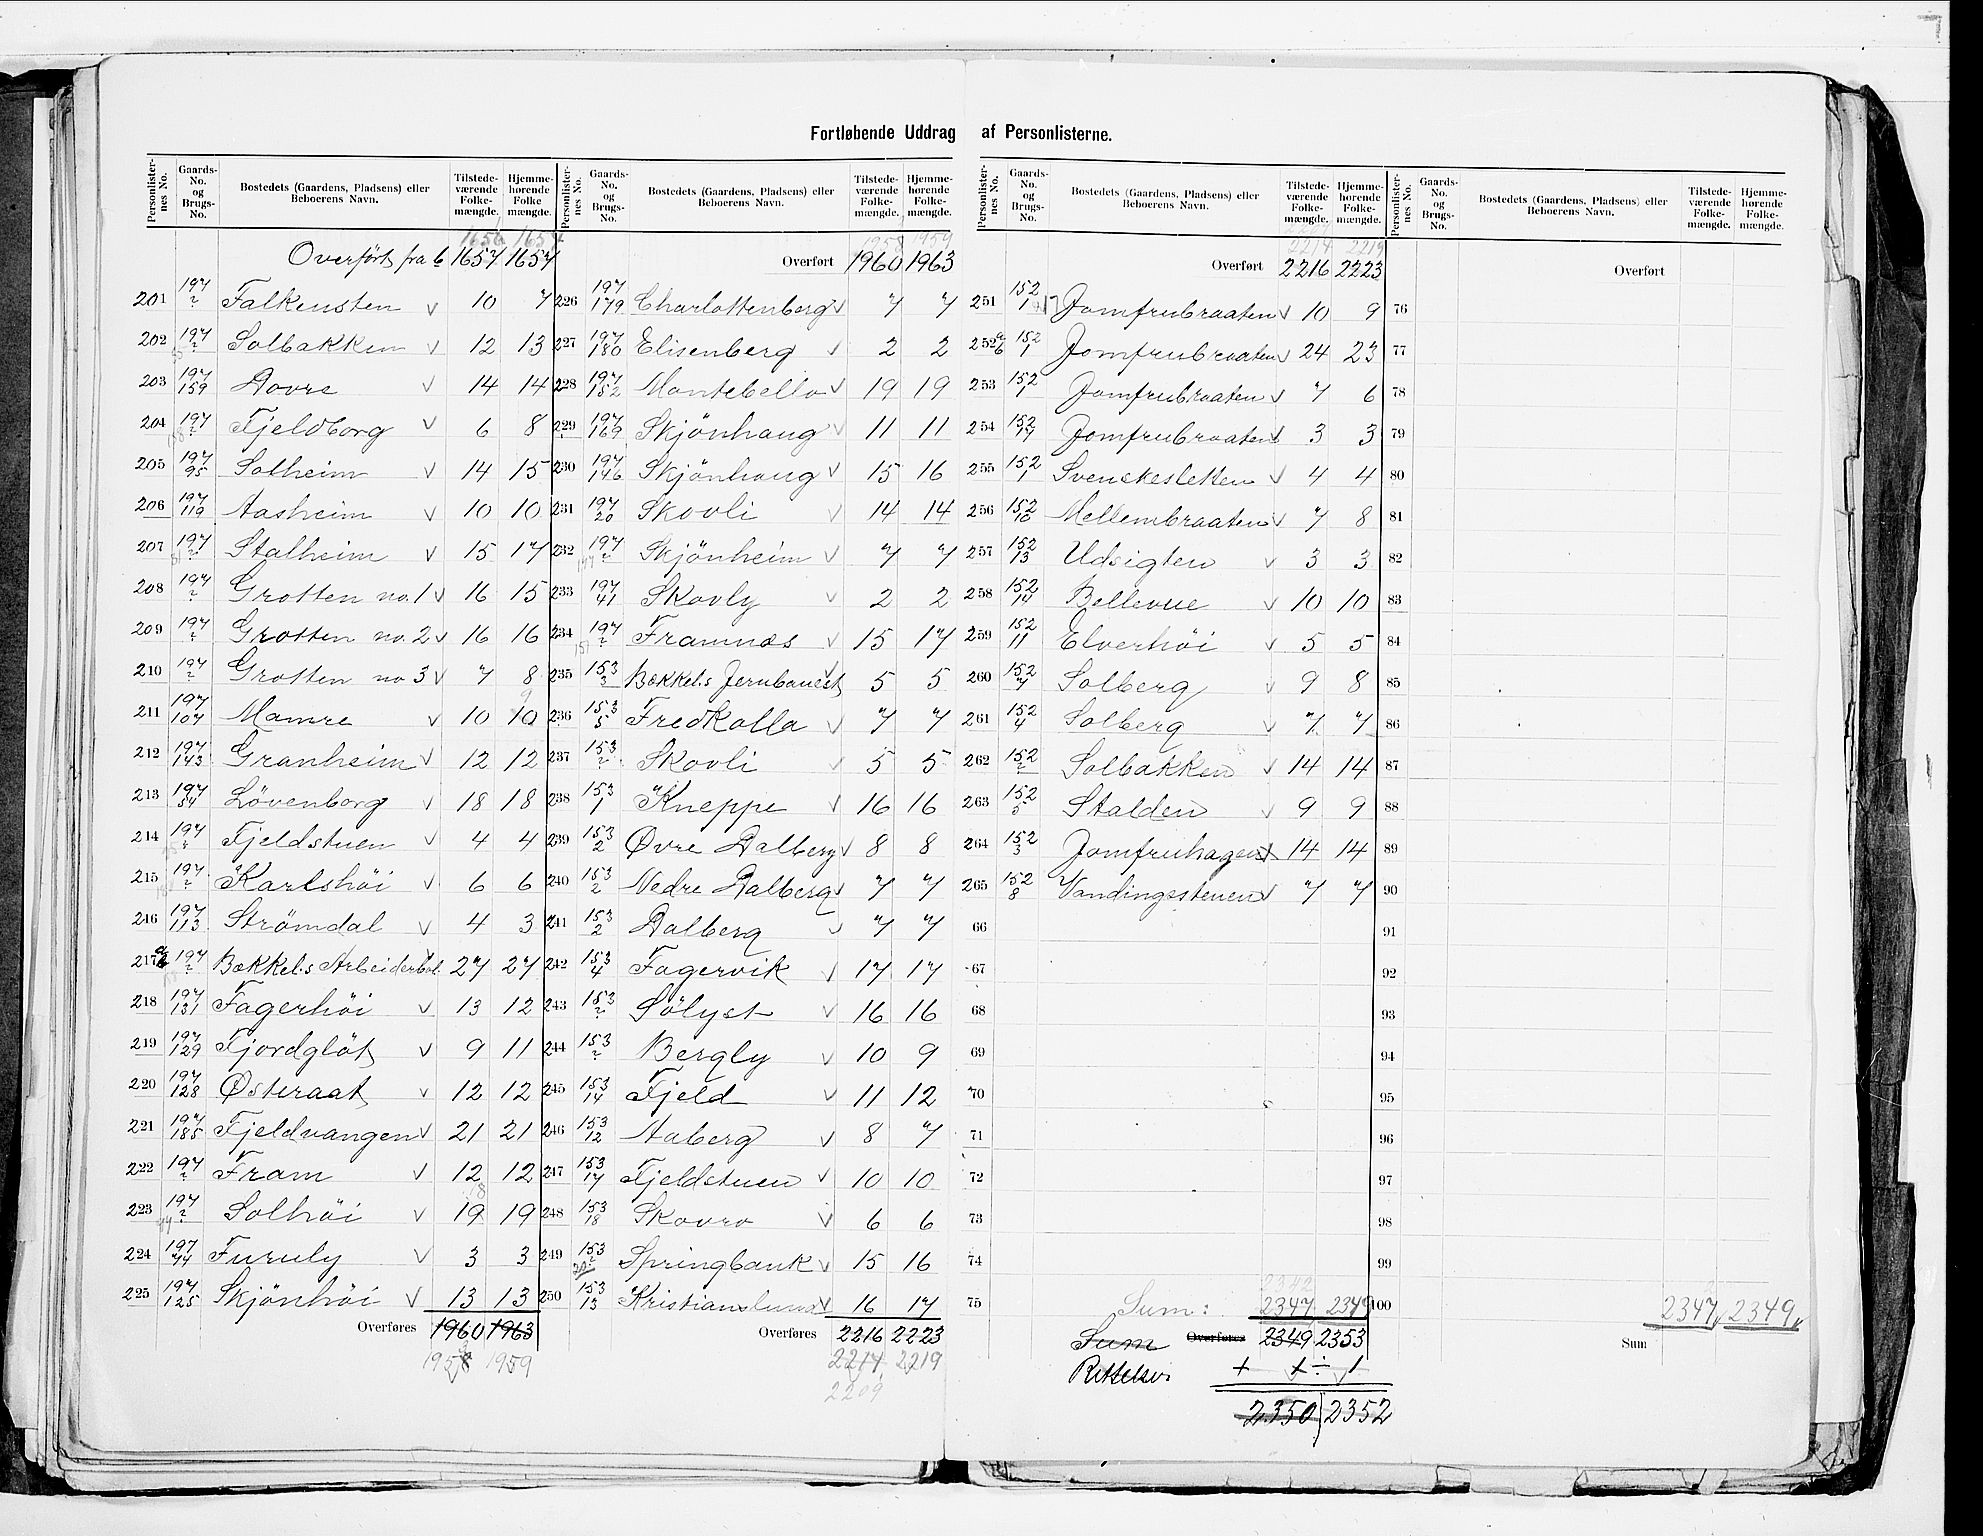 Fortløbende Uddrag af Personlisterne.
Personlister- nes No. | Gaards- No. og Brugs- No. | Bostedets (Gaardens, Pladsens) eller Beboerens Navn. | Tilstede- værende Folke- mængde. | Hjemme- hørende Folke mængde.
1656 1654
Overført fra 6 1657 1657
201 197/? Falkensten v 10 7
202 197/? Solbakken v 12 13
203 197/159 Dovre v 14 14
204 197/? Fjeldborg v 6 8
205 197/95 Solheim v 14 15
206 197/119 Aasheim v 10 10
207 197/? Stalheim v 15 17
208 197/? Grotten no. 1 v 16 15
209 197/? Grotten no. 2 v 16 16
210 197/? Grotten no 3 v 7 8
211 197/107 Mamre v 10 10
212 197/143 Granheim v 12 12
213 197/54 Lövenborg v 18 18
214 197/? Fjeldstuen v 4 4
215 197/? Karlshöi v 6 6
216 197/113 Strömdal v 4 3
217 197/? Bækkel.s Arbeiderbol. 27 27
218 197/131 Fagerhöi v 13 12
219 197/129 Fjordglöt v 9 11
220 197/128 Østeraat v 12 12
221 197/185 Fjeldvangen v 21 21
222 197/? Fram v 12 12
223 197/? Solhöi v 19 19
224 197/44 Furuly v 3 3
225 197/125 Skjönhöi v 13 13
Overføres 1960 1963
1958 1959
Personlister- nes No. | Gaards- No. og Brugs- No. | Bostedets (Gaardens, Pladsens) eller Beboerens Navn. | Tilstede- værende Folke- mængde. | Hjemme- hørende Folke- mængde.
1958 1959
Overført 1960 1963
226 197/179 Charlottenberg v 7 7
227 197/180 Elisenberg v 2 2
228 197/152 Montebello v 19 19
229 197/169 Skjönhaug v 11 11
230 197/146 Skjönhaug v 15 16
231 197/20 Skovli v 14 14
232 197/? Skjönheim v 7 7
233 197/41 Skovly v 2 2
234 197/? Framnæs v 15 17
235 153/3 Bækkel.s Jernbanest. v 5 5
236 153/5 Fredkolla v 7 7
237 153/? Skovli v 5 5
238 153/1 Kneppe v 16 16
239 153/2 Øvre Dalberg v 8 8
240 153/2 Nedre Dalberg v 7 7
241 153/2 Dalberg v 7 7
242 153/4 Fagervik v 17 17
243 153/? Sölyst v 16 16
244 153/? Bergly v 10 9
245 153/14 Fjeld v 11 12
246 153/12 Aaberg v 8 7
247 153/17 Fjeldstuen v 10 10
248 153/18 Skovro v 6 6
249 153/? Springbank v 15 16
250 153/13 Kristianslund v 16 17
Overføres 2216 2223
2214 2219
2209
Personlister- nes No. | Gaards- No. og Brugs- No. | Bostedets (Gaardens, Pladsens) eller Beboerens Navn. | Tilstede- værende Folke- mængde. | Hjemme- hørende Folke- mængde.
2214 2219
Overført 2216 2223
251 152/1 Jomfrubraaten v 10 9
252 152/1 Jomfrubraaten v 24 23
253 152/1 Jomfrubraaten v 7 6
254 152/17 Jomfrubraaten v 3 3
255 152/1 Svenskesletten v 4 4
256 152/16 Mellembraaten v 7 8
257 152/13 Udsigten v 3 3
258 152/14 Bellevue v 10 10
259 152/11 Elverhöi v 5 5
260 152/7 Solberg v 9 8
261 152/4 Solberg v 7 7
262 152/2 Solbakken v 14 14
263 152/5 Stalden v 9 9
264 152/3 Jomfruhagen v 14 14
265 152/8 Vandingsstenen v 7 7
66
67
68
69
70
71
72
73
74
75
2342
Sum: 2347 2349
Sum Overføres 2349 2353
Rettelser + 1 ÷ 1
2350 2352
Personlister- nes No. | Gaards- No. og Brugs- No. | Bostedets (Gaardens, Pladsens) eller Beboerens Navn. | Tilstede- værende Folke- mængde. | Hjemme- hørende Folke- mængde.
Overført
76
77
78
79
80
81
82
83
84
85
86
87
88
89
90
91
92
93
94
95
96
97
98
99
100 2347 2349
Sum